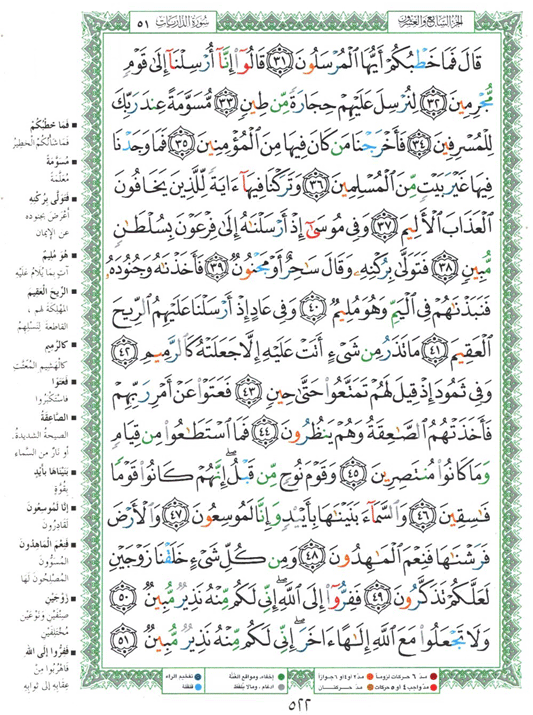 الجزء السابع والعشرون
سُورَةُ الذَّارِيَات ٥١
قَالَ فَمَا خَطْبُكُمْ أَيُّهَا الْمُرْسَلُونَ ٣١ قَالُوٓا إِنَّآ أُرْسِلْنَآ إِلَىٰ قَوْمٍ
مُّجْرِمِينَ ٣٢ لِنُرْسِلَ عَلَيْهِمْ حِجَارَةً مِّن طِينٍ ٣٣ مُّسَوَّمَةً عِندَ رَبِّكَ
لِلْمُسْرِفِينَ ٣٤ فَأَخْرَجْنَا مَن كَانَ فِيهَا مِنَ الْمُؤْمِنِينَ ٣٥ فَمَا وَجَدْنَا
فِيهَا غَيْرَ بَيْتٍ مِّنَ الْمُسْلِمِينَ ٣٦ وَتَرَكْنَا فِيهَآ ءَايَةً لِّلَّذِينَ يَخَافُونَ
الْعَذَابَ الْأَلِيمَ ٣٧ وَفِي مُوسَىٰٓ إِذْ أَرْسَلْنَٰهُ إِلَىٰ فِرْعَوْنَ بِسُلْطَٰنٍ
مُّبِينٍ ٣٨ فَتَوَلَّىٰ بِرُكْنِهِۦ وَقَالَ سَٰحِرٌ أَوْ مَجْنُونٌ ٣٩ فَأَخَذْنَٰهُ وَجُنُودَهُۥ
فَنَبَذْنَٰهُمْ فِي الْيَمِّ وَهُوَ مُلِيمٌ ٤٠ وَفِي عَادٍ إِذْ أَرْسَلْنَا عَلَيْهِمُ الرِّيحَ
الْعَقِيمَ ٤١ مَا تَذَرُ مِن شَيْءٍ أَتَتْ عَلَيْهِ إِلَّا جَعَلَتْهُ كَالرَّمِيمِ ٤٢
وَفِي ثَمُودَ إِذْ قِيلَ لَهُمْ تَمَتَّعُوا حَتَّىٰ حِينٍ ٤٣ فَعَتَوْا عَنْ أَمْرِ رَبِّهِمْ
فَأَخَذَتْهُمُ الصَّٰعِقَةُ وَهُمْ يَنظُرُونَ ٤٤ فَمَا اسْتَطَٰعُوا مِن قِيَامٍ
وَمَا كَانُوا مُنتَصِرِينَ ٤٥ وَقَوْمَ نُوحٍ مِّن قَبْلُ ۖ إِنَّهُمْ كَانُوا قَوْمًا
فَٰسِقِينَ ٤٦ وَالسَّمَآءَ بَنَيْنَٰهَا بِأَيْي۟دٍ وَإِنَّا لَمُوسِعُونَ ٤٧ وَالْأَرْضَ
فَرَشْنَٰهَا فَنِعْمَ الْمَٰهِدُونَ ٤٨ وَمِن كُلِّ شَيْءٍ خَلَقْنَا زَوْجَيْنِ
لَعَلَّكُمْ تَذَكَّرُونَ ٤٩ فَفِرُّوٓا إِلَى اللَّهِ ۖ إِنِّي لَكُم مِّنْهُ نَذِيرٌ مُّبِينٌ ٥٠
وَلَا تَجْعَلُوا مَعَ اللَّهِ إِلَٰهًا ءَاخَرَ ۖ إِنِّي لَكُم مِّنْهُ نَذِيرٌ مُّبِينٌ ٥١
فَمَا خَطْبُكُمْ
فَمَا شَأْنُكُمُ الْخَطِيرُ
مُسَوَّمَةً
مُعَلَّمَةً
فَتَوَلَّى بِرُكْنِهِ
أَعْرَضَ بِجُنُودِهِ
عَنِ الْإِيمَانِ
هُوَ مُلِيمٌ
آتٍ بِمَا يُلَامُ عَلَيْهِ
الرِّيحَ الْعَقِيمَ
الْمُهْلِكَةَ لَهُمْ ،
الْقَاطِعَةَ لِنَسْلِهِمْ
كَالرَّمِيمِ
كَالْهَشِيمِ الْمُفَتَّتِ
فَعَتَوْا
فَاسْتَكْبَرُوا
الصَّاعِقَةُ
الصَّيْحَةُ الشَّدِيدَةُ.
أَوْ نَارٌ مِنَ السَّمَاءِ
بَنَيْنَاهَا بِأَيْدٍ
بِقُوَّةٍ
إِنَّا لَمُوسِعُونَ
لَقَادِرُونَ
فَنِعْمَ الْمَاهِدُونَ
الْمُسَوُّونَ
الْمُصْلِحُونَ لَهَا
زَوْجَيْنِ
صِنْفَيْنِ وَنَوْعَيْنِ
مُخْتَلِفَيْنِ
فَفِرُّوا إِلَى اللَّهِ
فَاهْرُبُوا مِنْ
عِقَابِهِ إِلَى ثَوَابِهِ
مدّ ٦ حركات لزوماً مدّ ٢ أو ٤ أو ٦ جوازاً إخفاء، ومواقع الغنّة تفخيم الراء
مدّ واجب ٤ أو ٥ حركات مدّ حركتان ادغام ، وما لا يُلفظ قلقلة
٥٢٢